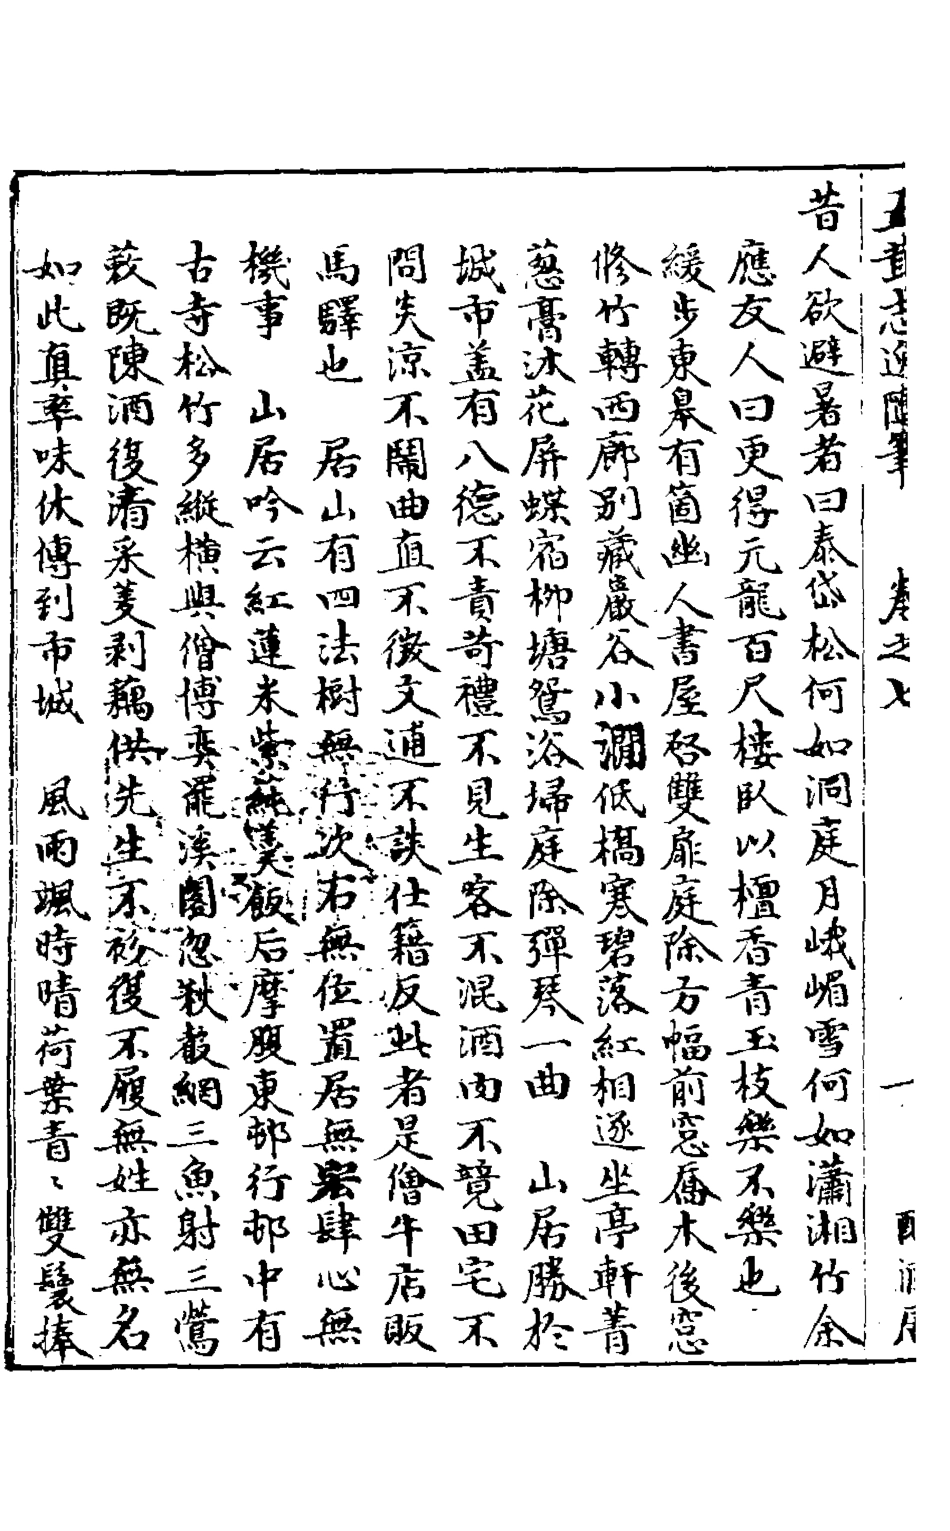 五茸志逸隨筆　卷之七　一
昔人欲避暑者曰泰岱松何如洞庭月峨嵋雪何如瀟湘竹余
應友人曰更得元龍百尺樓臥以檀香青玉枝樂不樂也
緩步東皋有箇幽人書屋啓雙扉庭除方幅前窓雁木後窓
修竹轉西廊别藏巖谷小澗低橋寒碧落紅相逐坐亭軒菁
葱膏沐花屏蝶宿柳塘鴛浴埽庭除彈琴一曲　山居勝於
城市盖有八德不責苛禮不見生客不混酒肉不競田宅不
問炎涼不鬧曲直不徴文逋不談仕籍反此者是僧牛店販
馬驛也　居山有四法樹無行次石無位置居無宏肆心無
機事　山居吟云紅蓮米紫蒓羹飯后摩腹東邨行邨中有
古寺松竹多縱横與僧博奕罷溪閣忽秋散網三魚射三鶯
蔌既陳酒復清采菱剥藕供先生不衫復不履無姓亦無名
如此真率味休傳到市城　風雨颯時晴荷葉青〻雙鬟捧